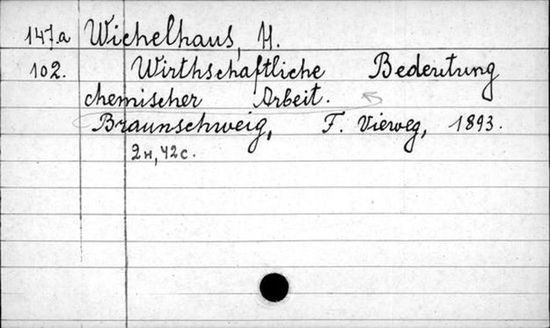 147.a Wichelhaus, H.
102. Wirthschaftliche Bedeutung
chemischer Arbeit.
Braunschweig, F. Vieweg, 1893.
2н, 42с.